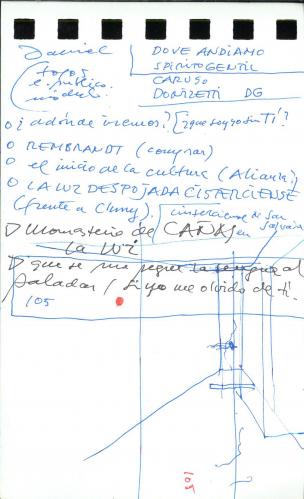 Daniel
DOVE ANDIAMO
SPIRITO GENTIL
fotos
e público
CARUSO
DONIZETTI DG
¿adónde iremos? ¿que soy yo sin Ti?
REMBRANDT (comprar)
el inicio de la cultura (Alianza)
LA LUZ DESPOJADA CISTERCIENSE
(frente a Cluny).
de San Salvador
Monasterio de CAÑAS en
la luz
que se me pegue la lengua al
paladar / si yo me olvido de ti.
105
105